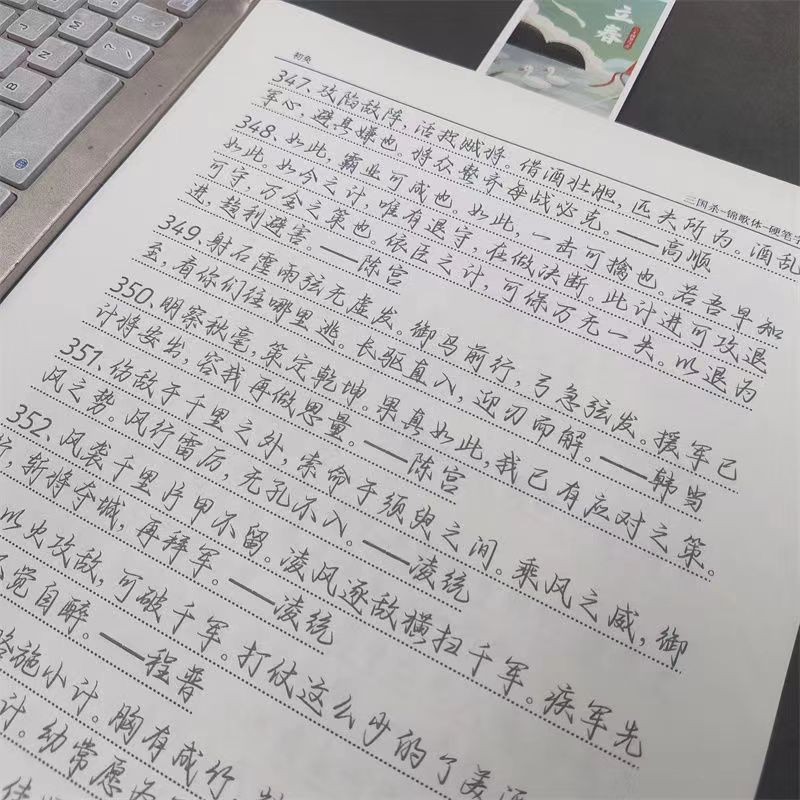 立春
初奕
三国杀-锦歌体-硬笔字
347.攻陷敌阵，活捉贼将。借酒壮胆，匹夫所为。酒乱
军心，避其嫌也。将众整齐每战必克。——高顺
348.如此，霸业可成也。如此，一击可擒也。若吾早知
如此。如今之计，唯有退守，在做决断。此计进可攻退
可守，万全之策也。依臣之计，可保万无一失。以退为
进，趋利避害。——陈宫
349.射石雪雨弦无虚发。御马前行，弓急弦发。援军已
至，看你们往哪里逃。长驱直入，迎刃而解。——韩当
350.明察秋毫，策定乾坤。果真如此，我已有应对之策。
计将安出，容我再做思量。——陈宫
351.伤敌于千里之外，索命于须臾之间。乘风之威，御
风之势。风行雷厉，无孔不入。——凌统
352.风袭千里片甲不留。凌风逐敌横扫千军。疾军先
行，斩将夺城，再拜军。——凌统
以火攻敌，可破千军。打仗这么吵的了美酒
觉自醉。——程普
施小计。胸有成竹，
计。幼常愿为